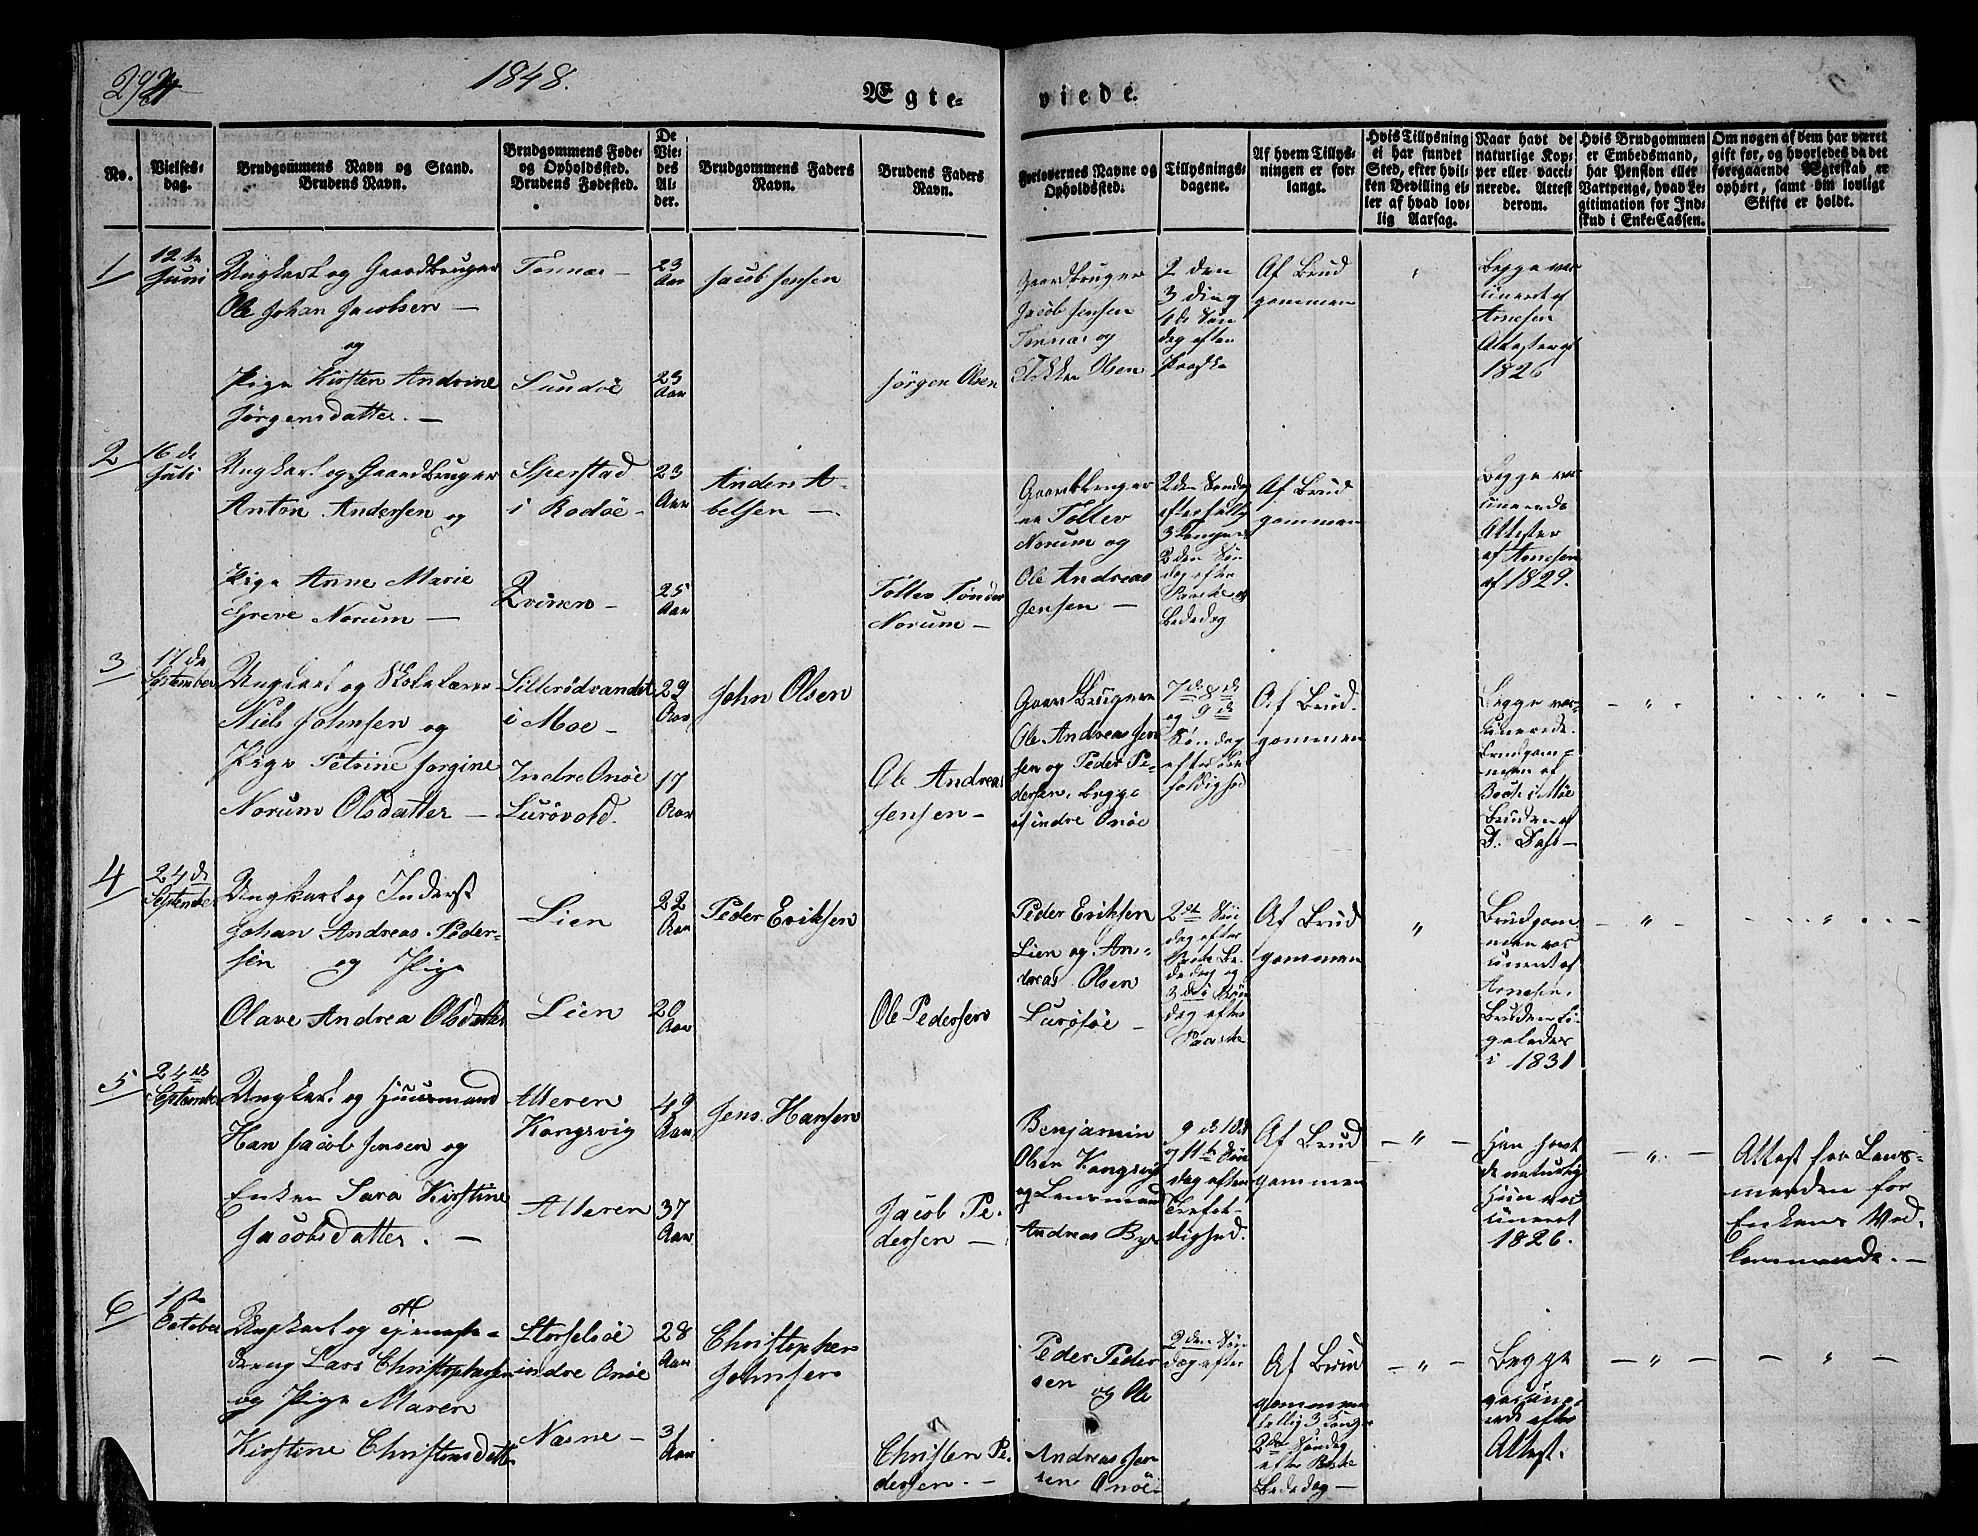 1848.
Ægte-
viede.
No.
Vielses-
dag.
Brudgommens Navn og Stand.
Brudens Navn.
Brudgommens Føde-
og Opholdssted.
Brudens Fødested.
De
Vie-
des
Al-
der.
Brudgommens Faders
Navn.
Brudens Faders
Navn.
Forlovernes Navne og
Opholdssted.
Tillysnings-
dagene.
Af hvem Tillys-
ningen er for-
langt.
Hvis Tillysning
ei har fundet
Sted, efter hvil-
ken Bevilling el-
ler af hvad lov-
lig Aarsag.
Naar havt de
naturlige Kop-
per eller vacci-
nerede. Attest
derom.
Hvis Brudgommen
er Embedsmand,
har Pension eller
Vartpenge, hvad Le-
gitimation for Ind-
skud i Enke-Cassen.
Om nogen af dem har været
gift før, og hvorledes da det
foregaaende Ægteskab er
ophørt, samt om lovligt
Skifte er holdt.
1
12te
Juni
Ungkarl og Gaardbruger
Ole Johan Jacobsen —
og
Pige Kirsten Andrine
Jørgensdatter. —
Tonnes —
Sundøe
23
Aar
23
Aar
Jacob Jensen
Jørgen Olsen
Gaardbruger
Jacob Jensen
Tonnes og
Olsen
2 den
3 die og
4de Søn
dag efter
Paaske
Af Brud
gommen
Begge vac
cineret af
Arnesen
Attester af
1826
2
16 de
Juli
Ungkarl og Gaardbruger
Anton Andersen og
Pige Anne Marie
Greve Norum —
Sperstad
i Rodøe —
Qvinen —
23
Aar
25
Aar
Anders A-
belsen —
Tollev Tønder
Norum —
Gaardbruger
ne Tollev
Norum og
Ole Andreas
Jensen —
2den Søndag
efterfellig
3 Konger
2den Søn
dag efter
Paaske og
Bededag
Af Brud
gommen
Begge vac
cinerede
Attester
af Arnesen
af 1829.
3
17 de
September
Ungkarl og Skolelærer
Niels Johnsen og
Pige Petrine Jorgine
Norum Olsdatter —
Lillerødvandet
i Moe —
Indre Onøe
Lurøvold.
29
Aar
17
Aar
John Olsen
Ole Andreas
Jensen —
Gaardbrugere
Ole Andreas Jen
sen og Peder Pe-
dersen, begge
af indre Onøe
7de 8de
og 9de
Søndag
efter Tre
foldighed
Af Brud-
gommen
Begge vac-
cinerede.
Brudgom-
men af
i Moe
Bruden af
D. Dass —
4
24 de
September
Ungkarl og Inderst
Johan Andreas Peder-
sen og Pige
Olave Andrea Olsdatter
Lien
Lien
22
Aar
20
Aar
Peder Eriksen
Ole Pedersen
Peder Eriksen
Lien og An-
dreas Olsen
Lurøføe —
2den Søn
dag efter
Be
dedag og
3die Søn
dag efter
Paaske
Af Brud
gommen
Brudgom
men vac
cineret af
Arnesen,
Bruden li-
geledes
i 1831
5
24de
September
Ungkarl og Huusmand
Han Jacob Jensen og
Enken Sara Kirstine
Jacobsdatter. —
Alteren
Kongsvig
Alteren
49
Aar
37
Aar
Jens Hansen
Jacob Pe-
dersen —
Benjamin
Olsen Kongsvig
og Lensmand
Andreas Bye
9de 10de
og 11te Søn
dag efter
Trefol-
dighed.
Af Brud
gommen
Han havt
de naturlige
Hun vac
cineret
1826.
Attest fra Lens-
manden for
Enkens Ved-
kommende. —
6
1ste
October
Ungkarl og Tjeneste-
dreng Lars Christophersen
og Pige Maren
Kirstine Christensdatt.
Storselsøe
indre Onøe
Næsne —
28
Aar
31
Aar
Christopher
Johnsen
Christen Pe-
dersen. —
Peder Peder
sen
og Ole
Andreas Jen
sen Onøe.
2den Søn
dag efter
Af Brud
gommen
hellig 3 Konger
2den Søndag
efter Paaske
Bededag —
Begge
vaccine-
rede efter
Attest.